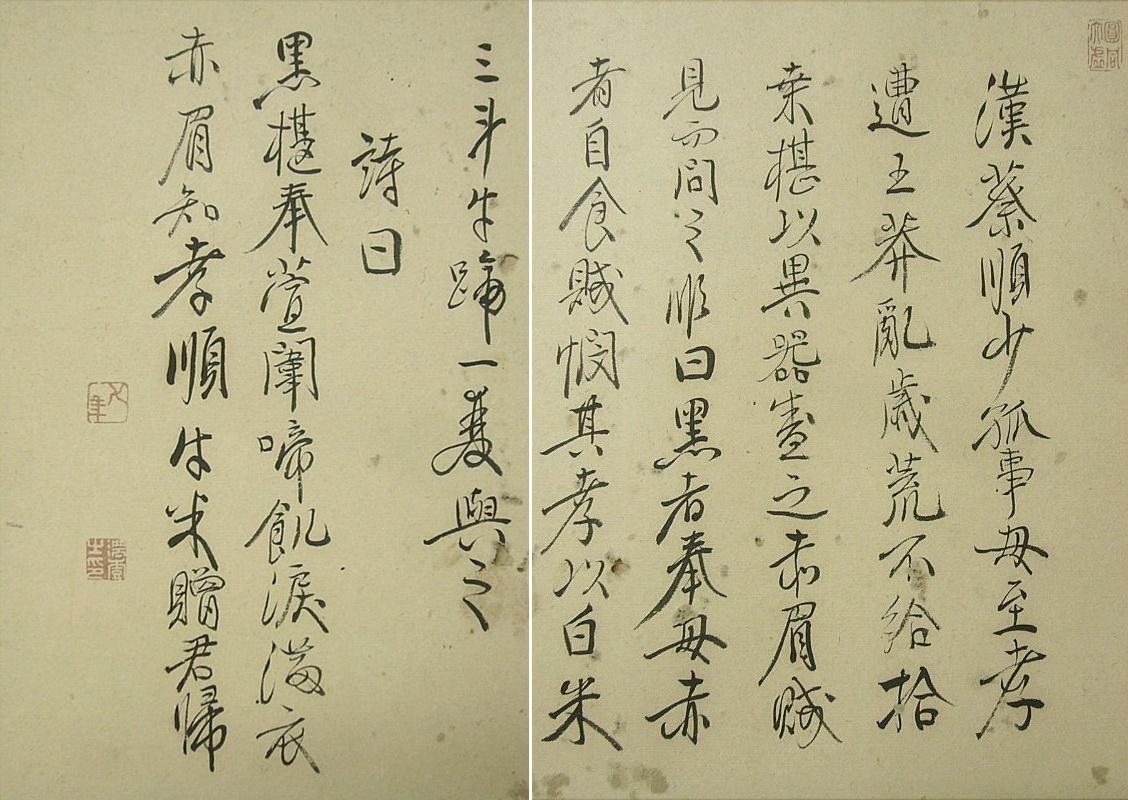 圓同太虛
漢蔡順少孤事母至孝
遭王莽亂歲荒不給拾
桒椹以異器盛之赤眉賊
見而問之順曰黑者奉母赤
者自食賊憫其孝以白米
三斗牛蹄一雙與之
詩曰
黑椹奉萱闈啼飢淚滿衣
赤眉知孝順牛米贈君歸